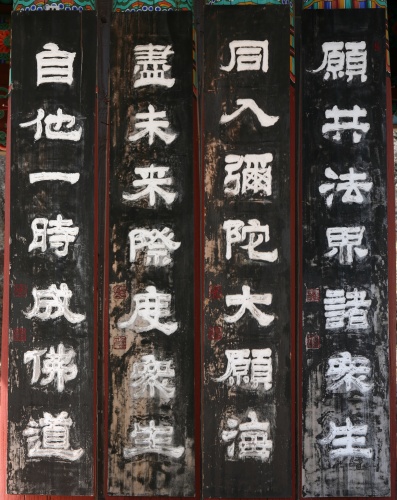 願共法界諸衆生
同入彌陀大願海
盡未来際度衆生
自他一時成佛道